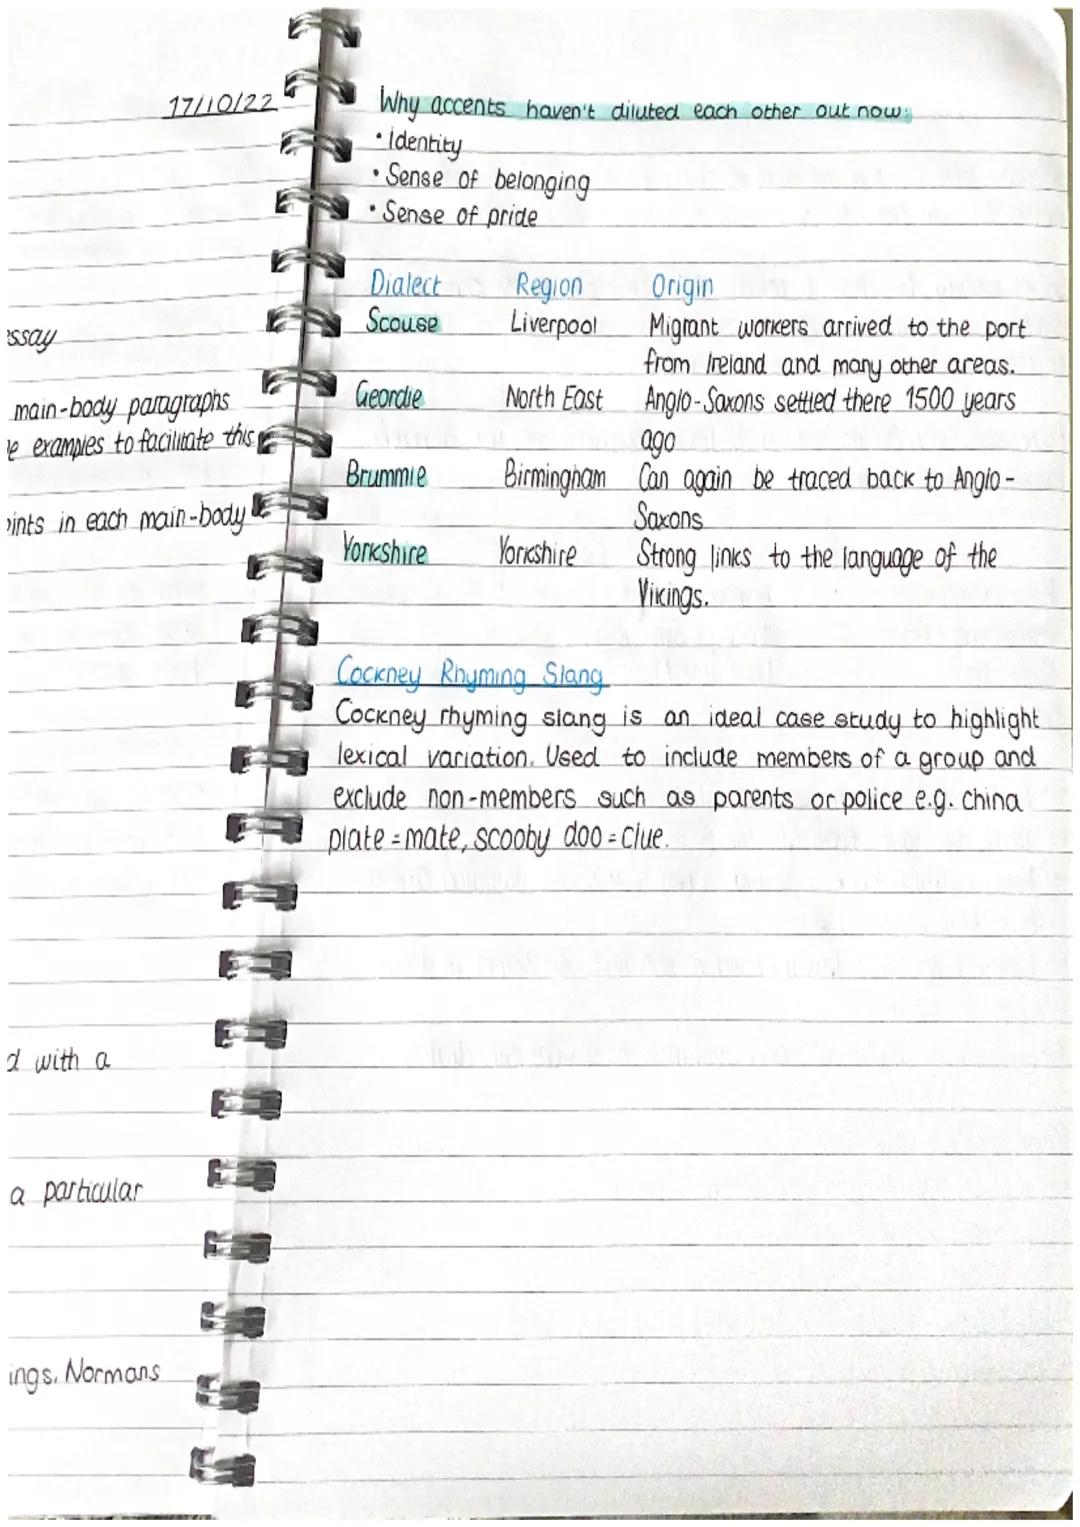 17/10/22
essay
main-body paragraphs
examples to facilitate this
in each main-body
with a
a particular
Normans
Why accents haven't diluted each other out now:
• Identity
• Sense of belonging
• Sense of pride
Dialect Region Origin
Scouse Liverpool Migrant workers arrived to the port
from Ireland and many other areas.
Geordie North East Anglo-Saxons settled there 1500 years
ago
Brummie Birmingham Can again be traced back to Anglo-
Saxons
Yorkshire Yorkshire Strong links to the language of the
Vikings.
Cockney Rhyming Slang
Cockney rhyming slang is an ideal case study to highlight
lexical variation. Used to include members of a group and
exclude non-members such as parents or police e.g. china
plate = mate, scooby doo = clue.